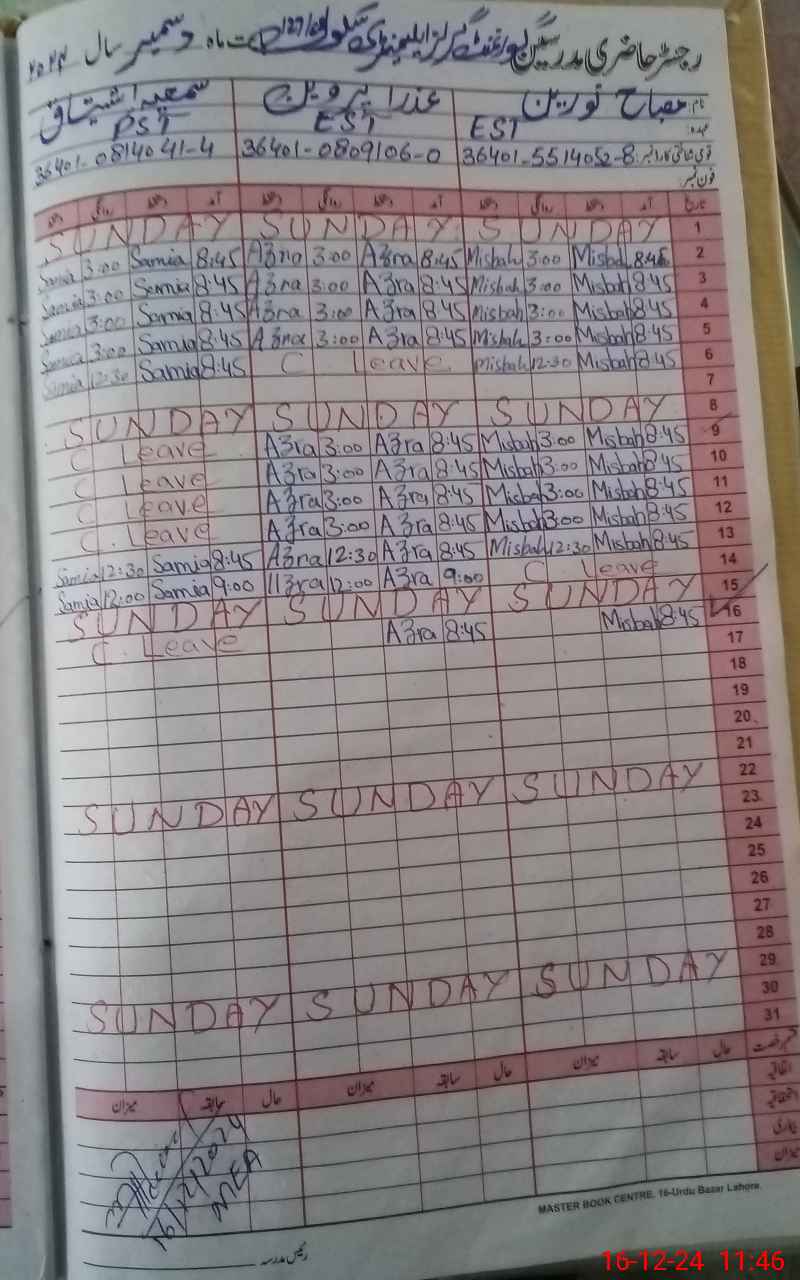 رجسٹر حاضری مدرسین گورنمنٹ گرلز ایلیمنٹری سکول 127/EB بابت ماہ دسمبر سال ۲۰۲۴
نام: مصباح نورین عذرا پروین سمعیہ اشتیاق
عہدہ: EST EST PST
قومی شناختی کارڈ نمبر: 36401-5514052-8 36401-0809106-0 36401-0814041-4
فون نمبر:
تاریخ آمد دستخط روانگی دستخط آمد دستخط روانگی دستخط آمد دستخط روانگی دستخط
SUNDAY SUNDAY SUNDAY 1
Samia 3:00 Samia 8:45 Azra 3:00 Azra 8:45 Misbah 3:00 Misbah 8:45 2
Samia 3:00 Samia 8:45 Azra 3:00 Azra 8:45 Misbah 3:00 Misbah 8:45 3
Samia 3:00 Samia 8:45 Azra 3:00 Azra 8:45 Misbah 3:00 Misbah 8:45 4
Samia 3:00 Samia 8:45 Azra 3:00 Azra 8:45 Misbah 3:00 Misbah 8:45 5
Samia 12:30 Samia 8:45 C Leave Misbah 12:30 Misbah 8:45 6
7
SUNDAY SUNDAY SUNDAY 8
C Leave Azra 3:00 Azra 8:45 Misbah 3:00 Misbah 8:45 9
C Leave Azra 3:00 Azra 8:45 Misbah 3:00 Misbah 8:45 10
C Leave Azra 3:00 Azra 8:45 Misbah 3:00 Misbah 8:45 11
C. Leave Azra 3:00 Azra 8:45 Misbah 3:00 Misbah 8:45 12
Samia 12:30 Samia 8:45 Azra 12:30 Azra 8:45 Misbah 12:30 Misbah 8:45 13
Samia 12:00 Samia 9:00 Azra 12:00 Azra 9:00 C Leave 14
SUNDAY SUNDAY SUNDAY 15
C. Leave Azra 8:45 Misbah 8:45 16
17
18
19
20
21
SUNDAY SUNDAY SUNDAY 22
23
24
25
26
27
28
SUNDAY SUNDAY SUNDAY 29
30
31
قسم رخصت حال سابقہ میزان حال سابقہ میزان حال سابقہ میزان
اتفاقیہ
استحقاقیہ
بیماری
میزان
16/12/2024
MEA
MASTER BOOK CENTRE, 16-Urdu Bazar Lahore.
رئیس مدرسہ
16-12-24 11:46